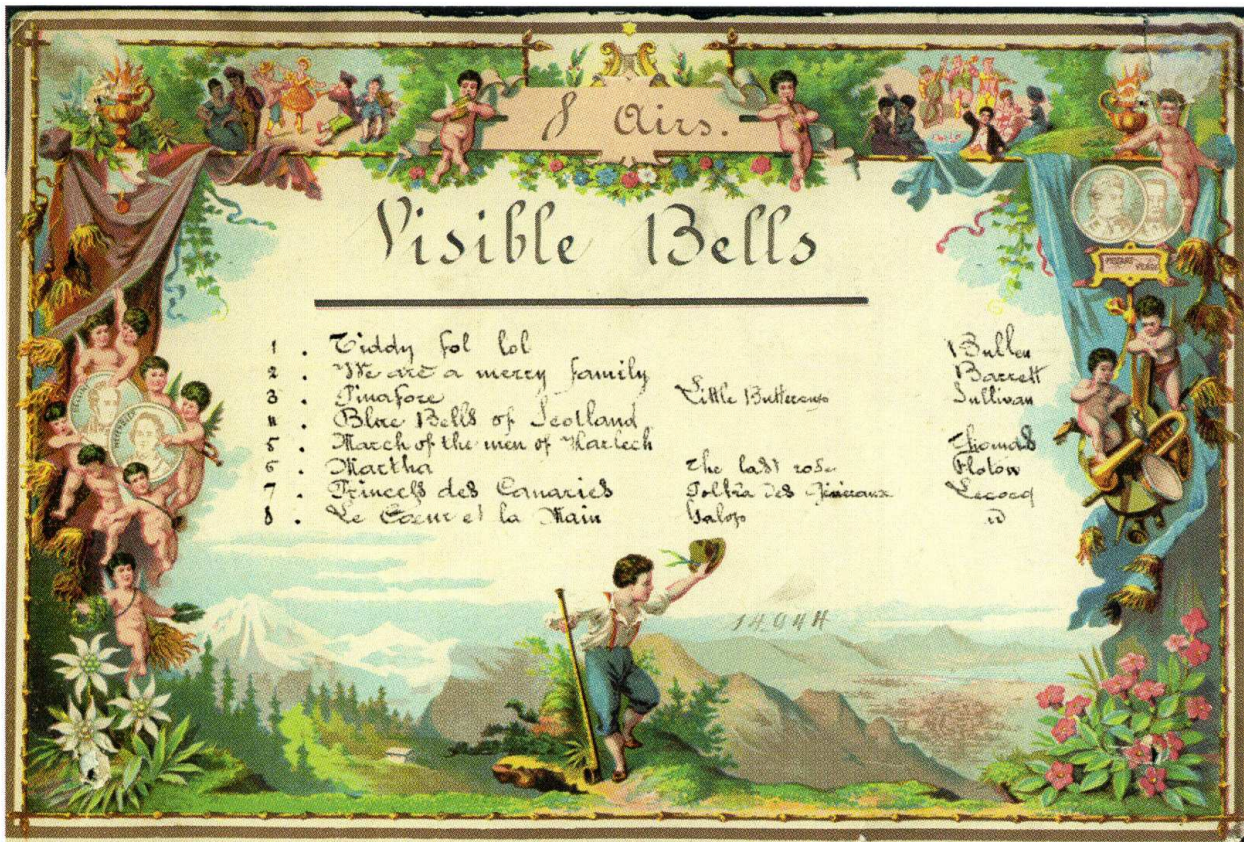 8 Airs.
Visible Bells
1. Tiddy fol lol Bullen
2. We are a merry family Barrett
3. Pinafore Little Buttercup Sullivan
4. Blue Bells of Scotland
5. March of the men of Harlech Thomas
6. Martha The last rose Flotow
7. Princess des Canaries Polka des Généraux Lecocq
8. Le Coeur et la Main Galop id
14044
MOZART VERDI